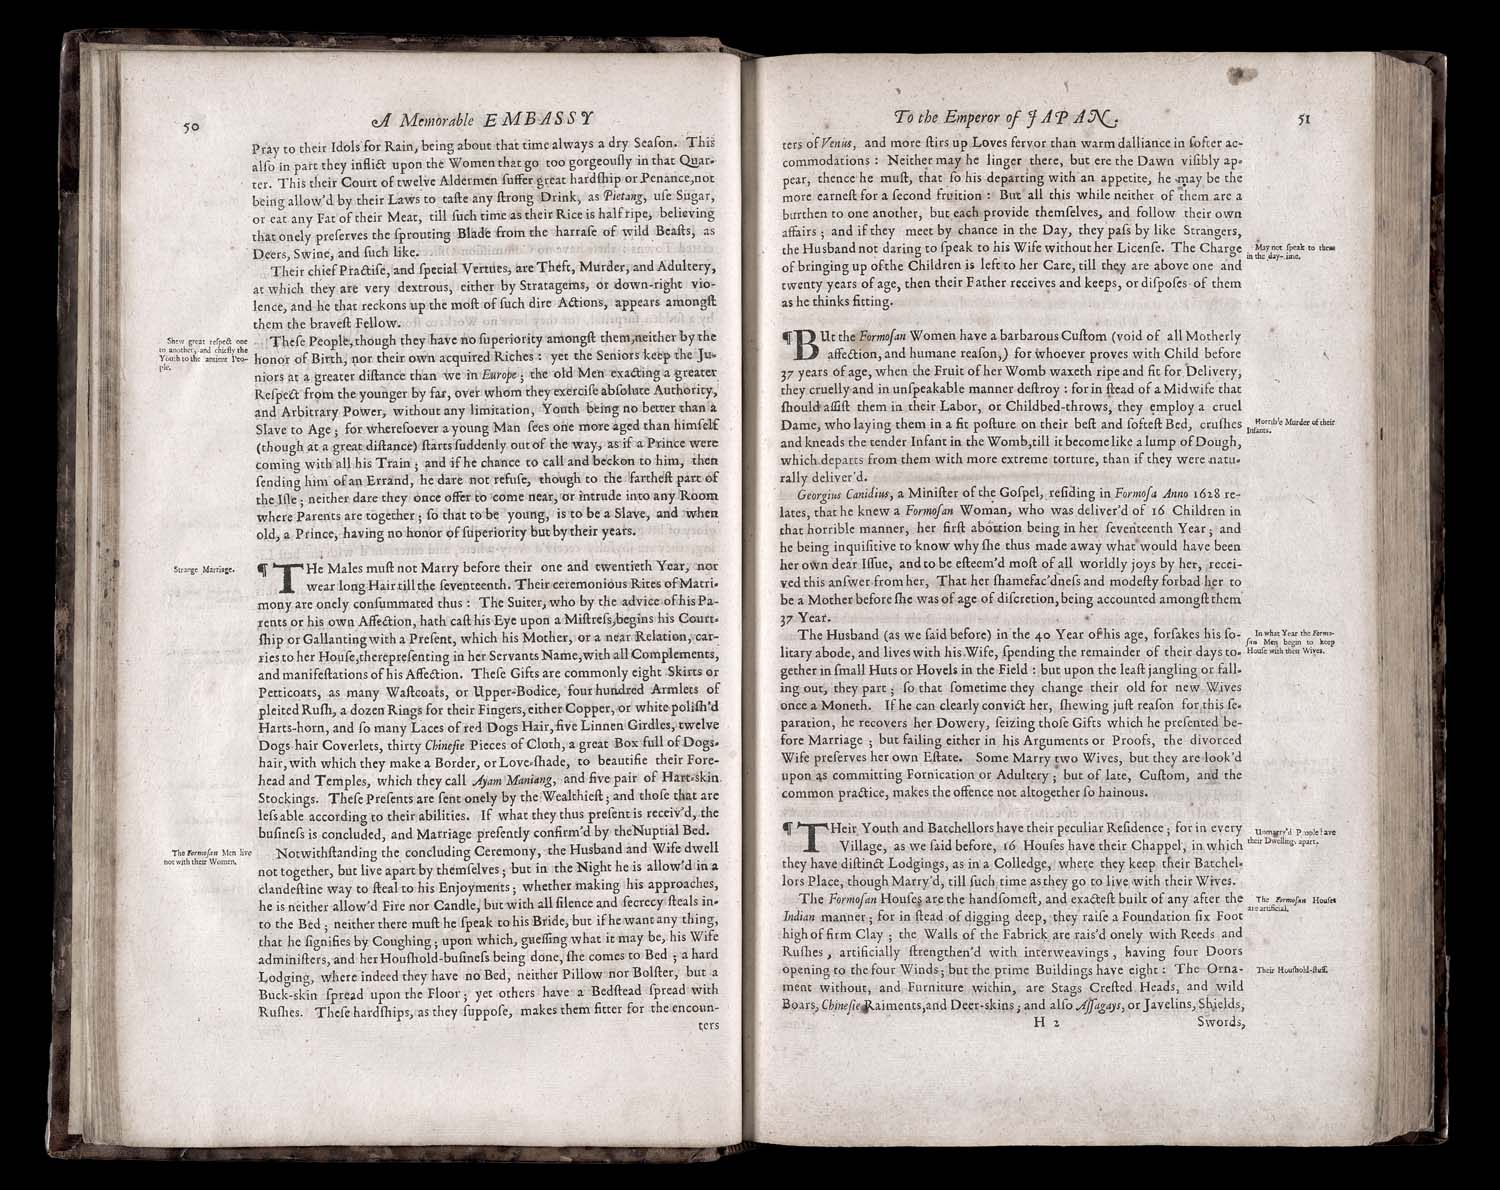 50
A Memorable EMBASSY
Pray to their Idols for Rain, being about that time always a dry Seaſon. This
alſo in part they inflict upon the Women that go too gorgeouſly in that Quar-
ter. This their Court of twelve Aldermen ſuffer great hardſhip or Penance, not
being allow'd by their Laws to taſte any ſtrong Drink, as Pietang, uſe Sugar,
or eat any Fat of their Meat, till ſuch time as their Rice is half ripe, believing
that onely preſerves the ſprouting Blade from the harraſe of wild Beaſts, as
Deers, Swine, and ſuch like.
Their chief Practiſe, and ſpecial Vertues, are Theft, Murder, and Adultery,
at which they are very dextrous, either by Stratagems, or down-right vio-
lence, and he that reckons up the moſt of ſuch dire Actions, appears amongſt
them the braveſt Fellow.
Shew great reſpect one
to another, and chiefly the
Youth to the antient Peo-
ple.
Theſe People, though they have no ſuperiority amongſt them, neither by the
honor of Birth, nor their own acquired Riches : yet the Seniors keep the Ju-
niors at a greater diſtance than we in Europe ; the old Men exacting a greater
Reſpect from the younger by far, over whom they exerciſe abſolute Authority,
and Arbitrary Power, without any limitation, Youth being no better than a
Slave to Age ; for whereſoever a young Man ſees one more aged than himſelf
(though at a great diſtance) ſtarts ſuddenly out of the way, as if a Prince were
coming with all his Train ; and if he chance to call and beckon to him, then
ſending him of an Errand, he dare not refuſe, though to the fartheſt part of
the Iſle ; neither dare they once offer to come near, or intrude into any Room
where Parents are together ; ſo that to be young, is to be a Slave, and when
old, a Prince, having no honor of ſuperiority but by their years.
Strange Marriage.
¶ THe Males muſt not Marry before their one and twentieth Year, nor
wear long Hair till the ſeventeenth. Their ceremonious Rites of Matri-
mony are onely conſummated thus : The Suiter, who by the advice of his Pa-
rents or his own Affection, hath caſt his Eye upon a Miſtreſs, begins his Court-
ſhip or Gallanting with a Preſent, which his Mother, or a near Relation, car-
ries to her Houſe, there preſenting in her Servants Name, with all Complements,
and manifeſtations of his Affection. Theſe Gifts are commonly eight Skirts or
Petticoats, as many Waſtcoats, or Upper-Bodice, four hundred Armlets of
pleited Ruſh, a dozen Rings for their Fingers, either Copper, or white poliſh'd
Harts-horn, and ſo many Laces of red Dogs Hair, five Linnen Girdles, twelve
Dogs-hair Coverlets, thirty Chineſie Pieces of Cloth, a great Box full of Dogs-
hair, with which they make a Border, or Love-ſhade, to beautifie their Fore-
head and Temples, which they call Ayam Maniang, and five pair of Hart-skin
Stockings. Theſe Preſents are ſent onely by the Wealthieſt ; and thoſe that are
leſs able according to their abilities. If what they thus preſent is receiv'd, the
buſineſs is concluded, and Marriage preſently confirm'd by the Nuptial Bed.
The Formoſan Men live
not with their Women.
Notwithſtanding the concluding Ceremony, the Husband and Wife dwell
not together, but live apart by themſelves ; but in the Night he is allow'd in a
clandeſtine way to ſteal to his Enjoyments ; whether making his approaches,
he is neither allow'd Fire nor Candle, but with all ſilence and ſecrecy ſteals in-
to the Bed ; neither there muſt he ſpeak to his Bride, but if he want any thing,
that he ſignifies by Coughing ; upon which, gueſſing what it may be, his Wife
adminiſters, and her Houſhold-buſineſs being done, ſhe comes to Bed ; a hard
Lodging, where indeed they have no Bed, neither Pillow nor Bolſter, but a
Buck-skin ſpread upon the Floor ; yet others have a Bedſtead ſpread with
Ruſhes. Theſe hardſhips, as they ſuppoſe, makes them fitter for the encoun-
ters
To the Emperor of JAPAN.
51
ters of Venus, and more ſtirs up Loves fervor than warm dalliance in ſofter ac-
commodations : Neither may he linger there, but ere the Dawn viſibly ap-
pear, thence he muſt, that ſo his departing with an appetite, he may be the
more earneſt for a ſecond fruition : But all this while neither of them are a
burthen to one another, but each provide themſelves, and follow their own
affairs ; and if they meet by chance in the Day, they paſs by like Strangers,
the Husband not daring to ſpeak to his Wife without her Licenſe. The Charge
of bringing up of the Children is left to her Care, till they are above one and
twenty years of age, then their Father receives and keeps, or diſpoſes of them
as he thinks fitting.
May not ſpeak to them
in the day-time.
¶ BUt the Formoſan Women have a barbarous Cuſtom (void of all Motherly
affection, and humane reaſon,) for whoever proves with Child before
37 years of age, when the Fruit of her Womb waxeth ripe and fit for Delivery,
they cruelly and in unſpeakable manner deſtroy : for in ſtead of a Midwife that
ſhould aſſiſt them in their Labor, or Childbed-throws, they employ a cruel
Dame, who laying them in a fit poſture on their beſt and ſofteſt Bed, cruſhes
and kneads the tender Infant in the Womb, till it become like a lump of Dough,
which departs from them with more extreme torture, than if they were natu-
rally deliver'd.
Horrible Murder of their
Infants.
Georgius Canidius, a Miniſter of the Goſpel, reſiding in Formoſa Anno 1628 re-
lates, that he knew a Formoſan Woman, who was deliver'd of 16 Children in
that horrible manner, her firſt abortion being in her ſeventeenth Year ; and
he being inquiſitive to know why ſhe thus made away what would have been
her own dear Iſſue, and to be eſteem'd moſt of all worldly joys by her, recei-
ved this anſwer from her, That her ſhamefac'dneſs and modeſty forbad her to
be a Mother before ſhe was of age of diſcretion, being accounted amongſt them
37 Year.
The Husband (as we ſaid before) in the 40 Year of his age, forſakes his ſo-
litary abode, and lives with his Wife, ſpending the remainder of their days to-
gether in ſmall Huts or Hovels in the Field : but upon the leaſt jangling or fall-
ing out, they part ; ſo that ſometime they change their old for new Wives
once a Moneth. If he can clearly convict her, ſhewing juſt reaſon for this ſe-
paration, he recovers her Dowery, ſeizing thoſe Gifts which he preſented be-
fore Marriage ; but failing either in his Arguments or Proofs, the divorced
Wife preſerves her own Eſtate. Some Marry two Wives, but they are look'd
upon as committing Fornication or Adultery ; but of late, Cuſtom, and the
common practice, makes the offence not altogether ſo hainous.
In what Year the Formo-
ſan Men begin to keep
Houſe with their Wives.
¶ THeir Youth and Batchellors have their peculiar Reſidence ; for in every
Village, as we ſaid before, 16 Houſes have their Chappel, in which
they have diſtinct Lodgings, as in a Colledge, where they keep their Batchel-
lors Place, though Marry'd, till ſuch time as they go to live with their Wives.
Unmarry'd People have
their Dwellings apart.
The Formoſan Houſes are the handſomeſt, and exacteſt built of any after the
Indian manner ; for in ſtead of digging deep, they raiſe a Foundation ſix Foot
high of firm Clay ; the Walls of the Fabrick are rais'd onely with Reeds and
Ruſhes, artificially ſtrengthen'd with interweavings, having four Doors
opening to the four Winds ; but the prime Buildings have eight : The Orna-
ment without, and Furniture within, are Stags Creſted Heads, and wild
Boars, Chineſie Raiments, and Deer-skins ; and alſo Aſſagays, or Javelins, Shields,
The Formoſan Houſes
are artificial.
Their Houſhold-ſtuff.
H 2
Swords,